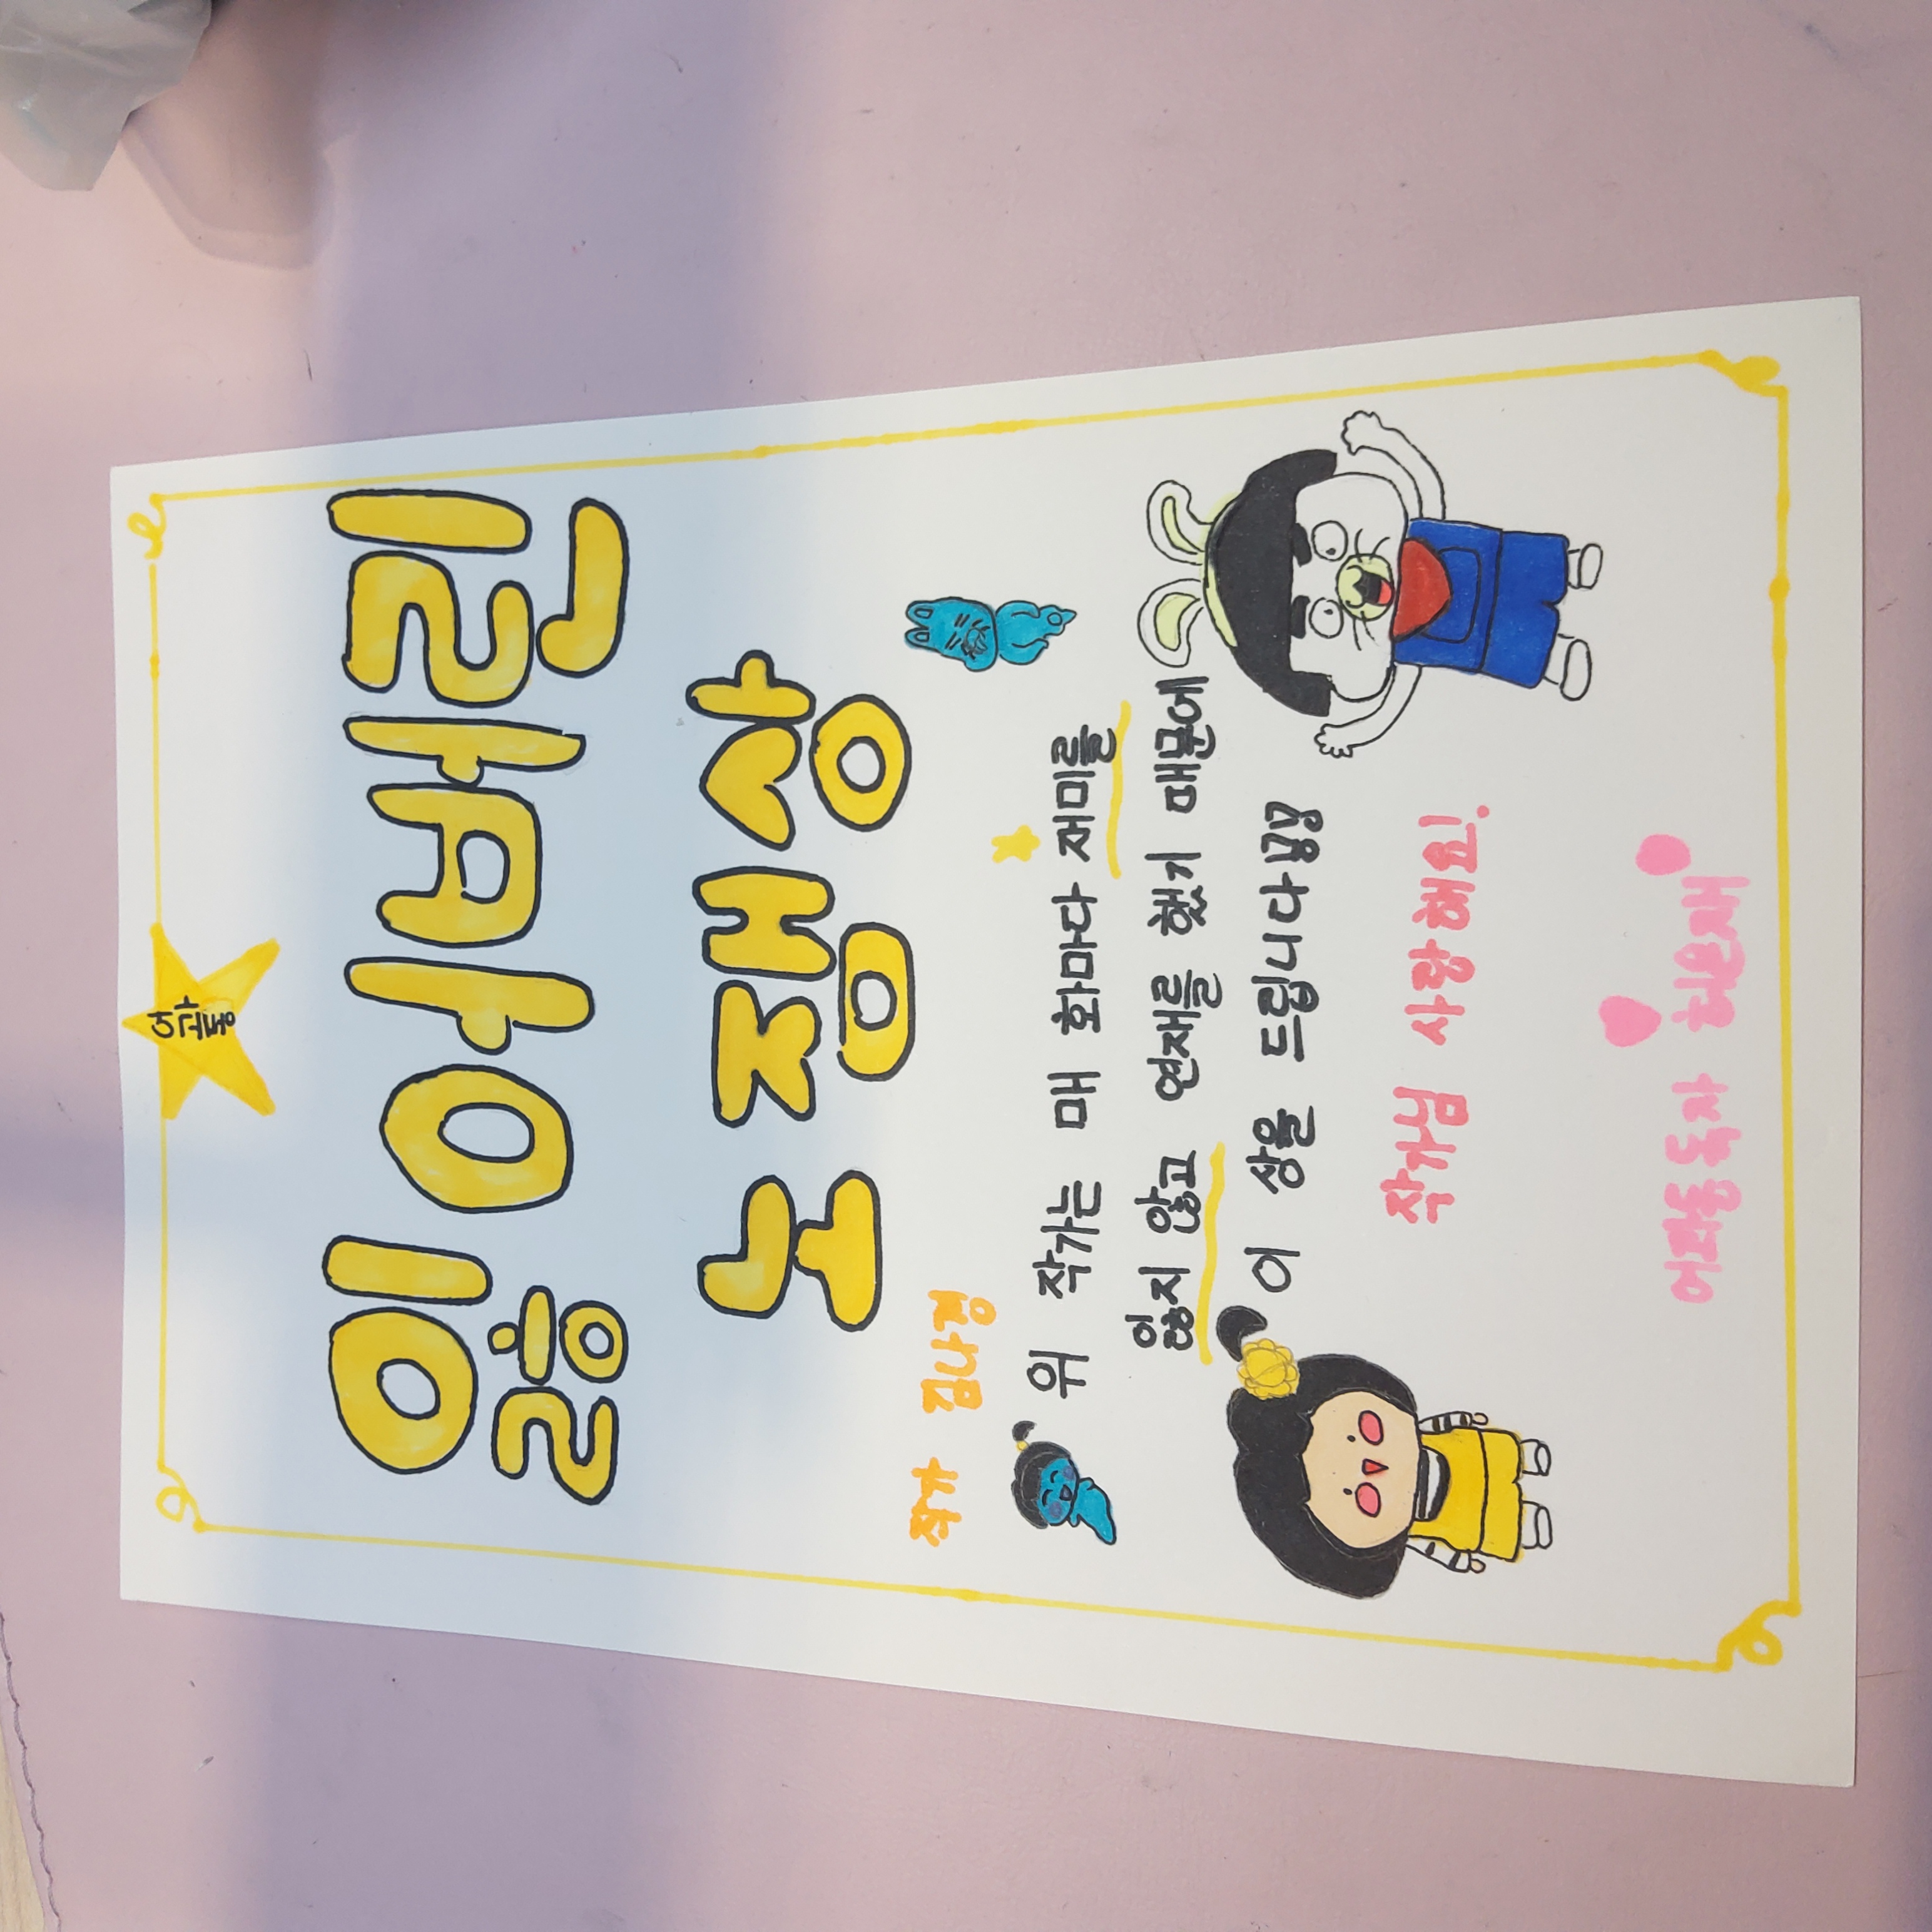 잃어버린
노잼상
작가 김나경
위 작가는 매 화마다 재미를
잃지 않고 연재를 했기 때문에
이 상을 드립니다
작가님 사랑해요!
어과동 독자